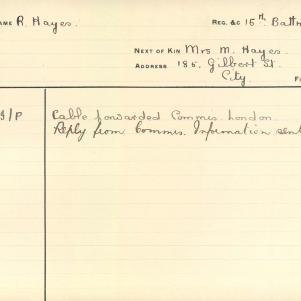 AME R. Hayes. REG. &C 15th Battn
NEXT OF KIN Mrs. M. Hayes.
ADDRESS 185. Gilbert St.
City
/P Cable forwarded Commis. London.
Reply from Commis. Information sent